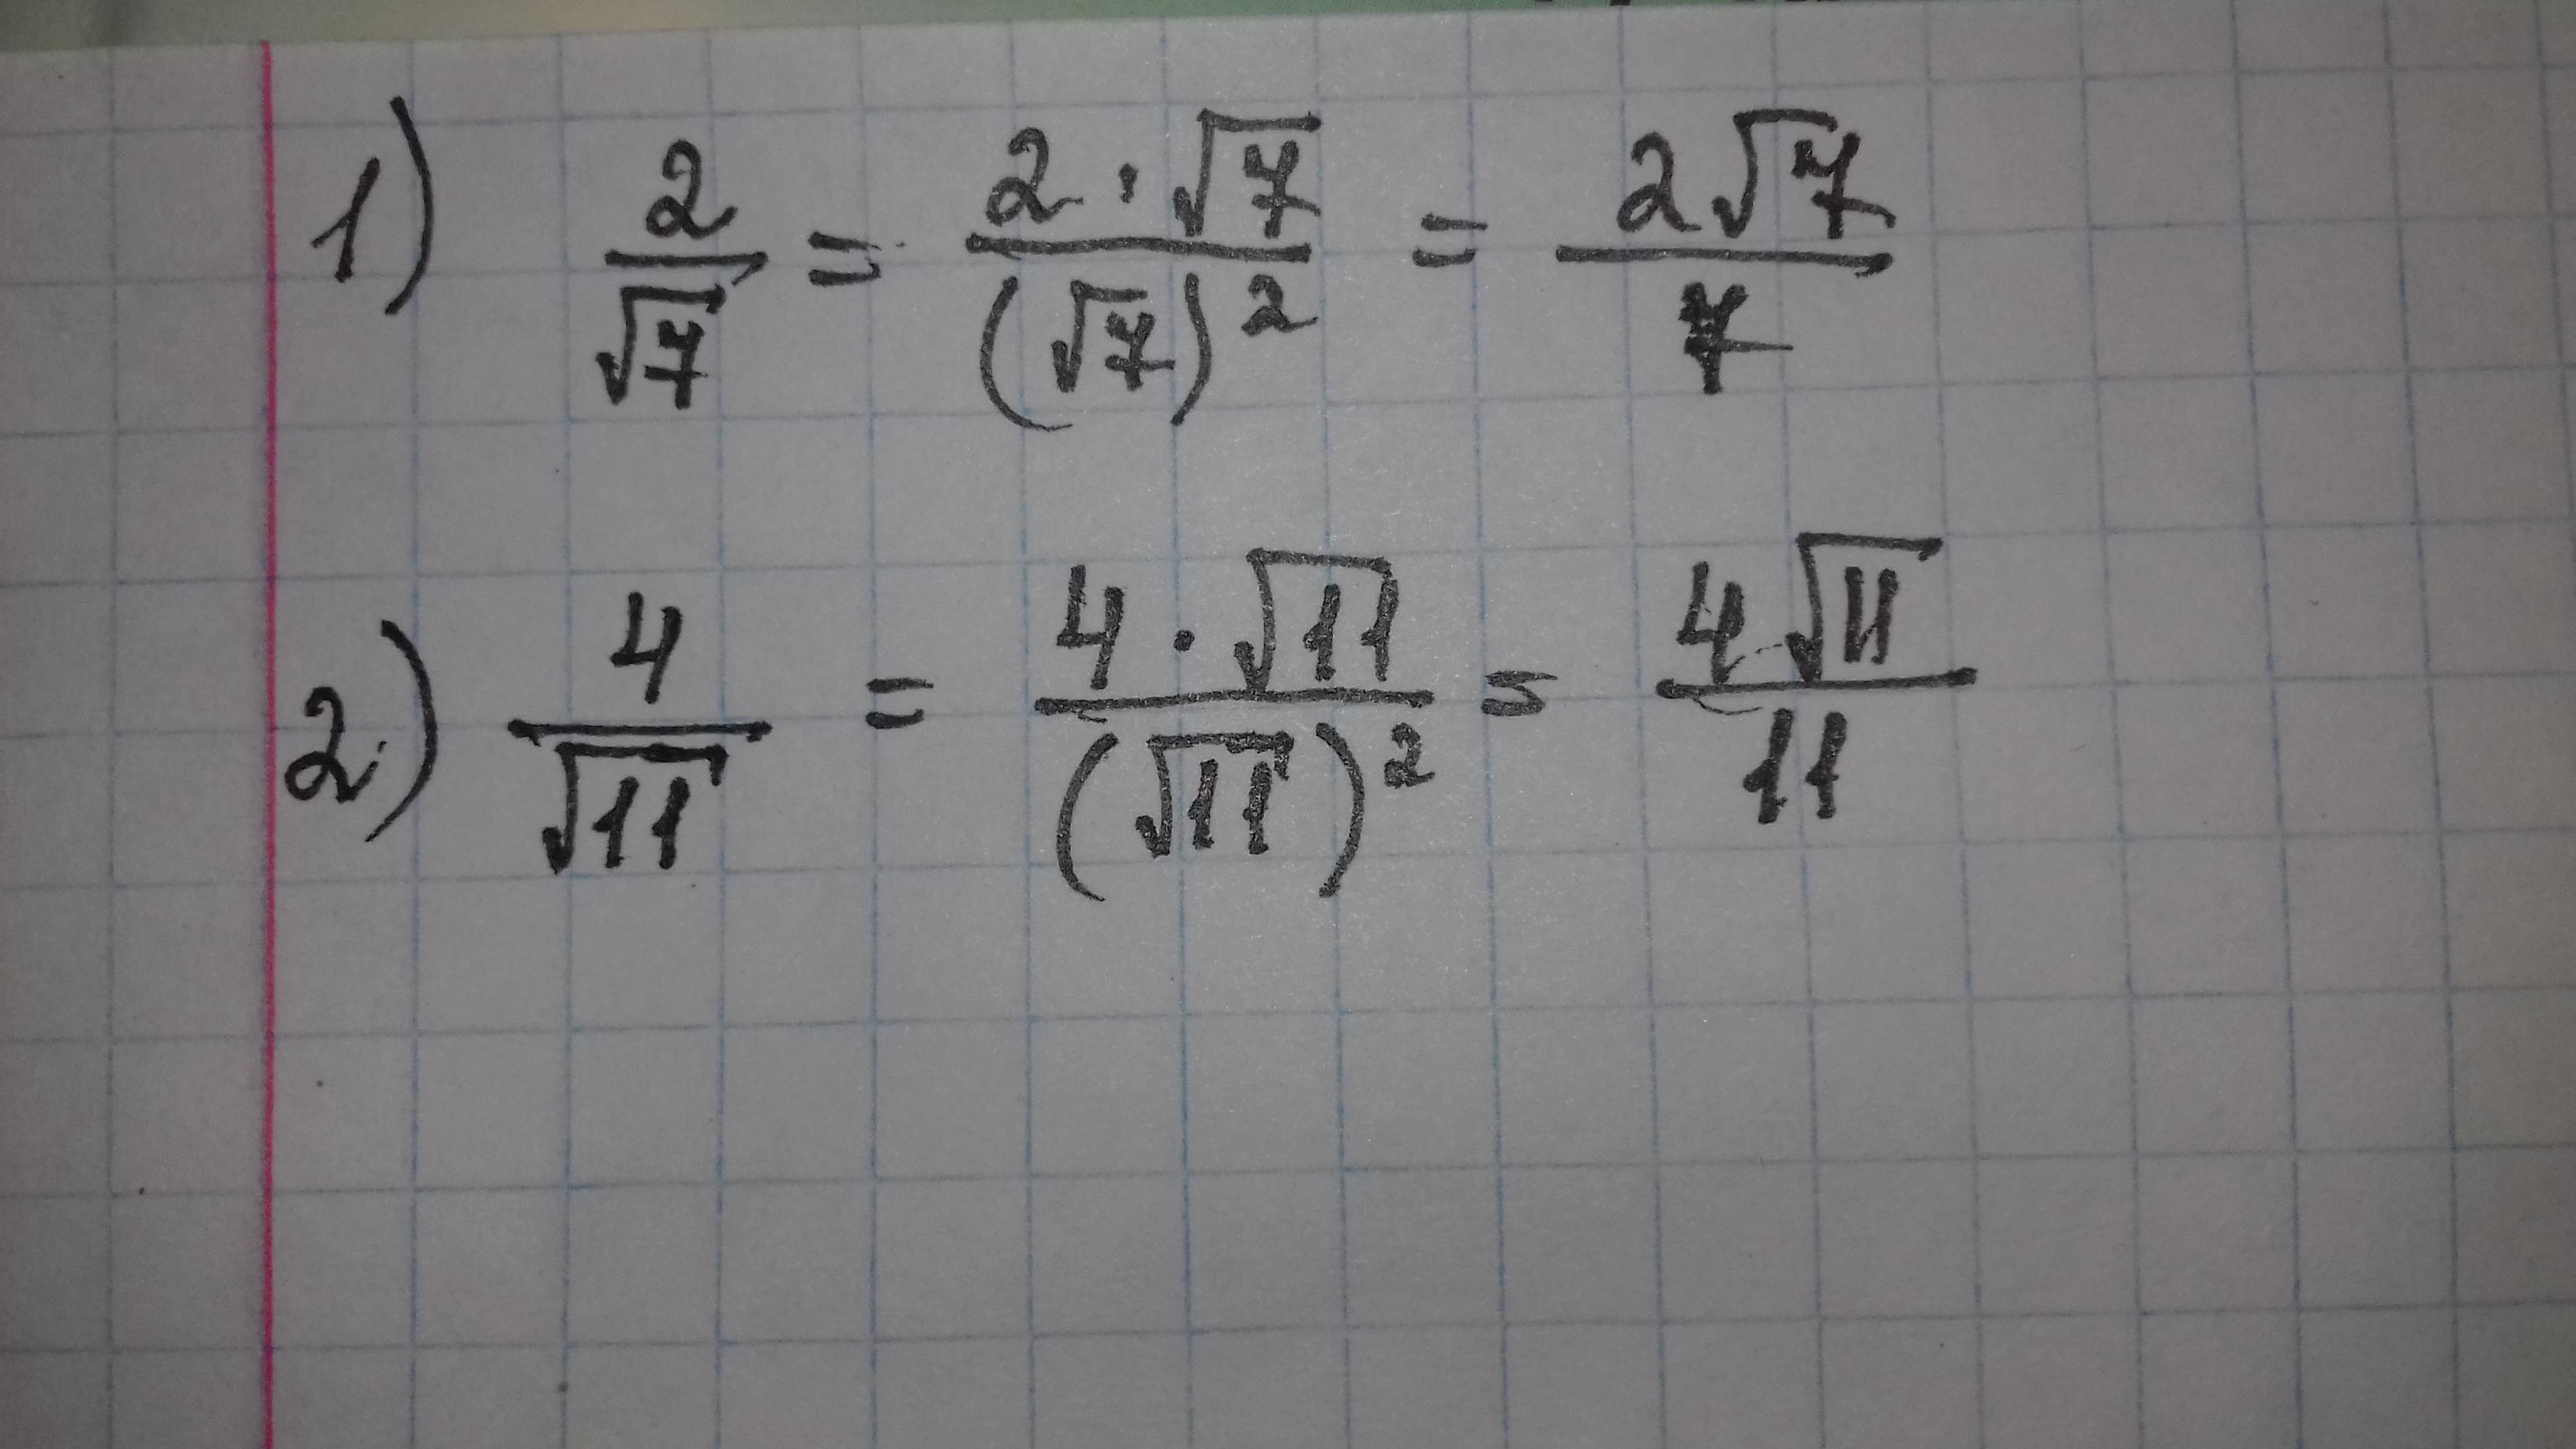 1) 2/√7 = 2·√7/(√7)² = 2√7/7
2) 4/√11 = 4·√11/(√11)² = 4√11/11